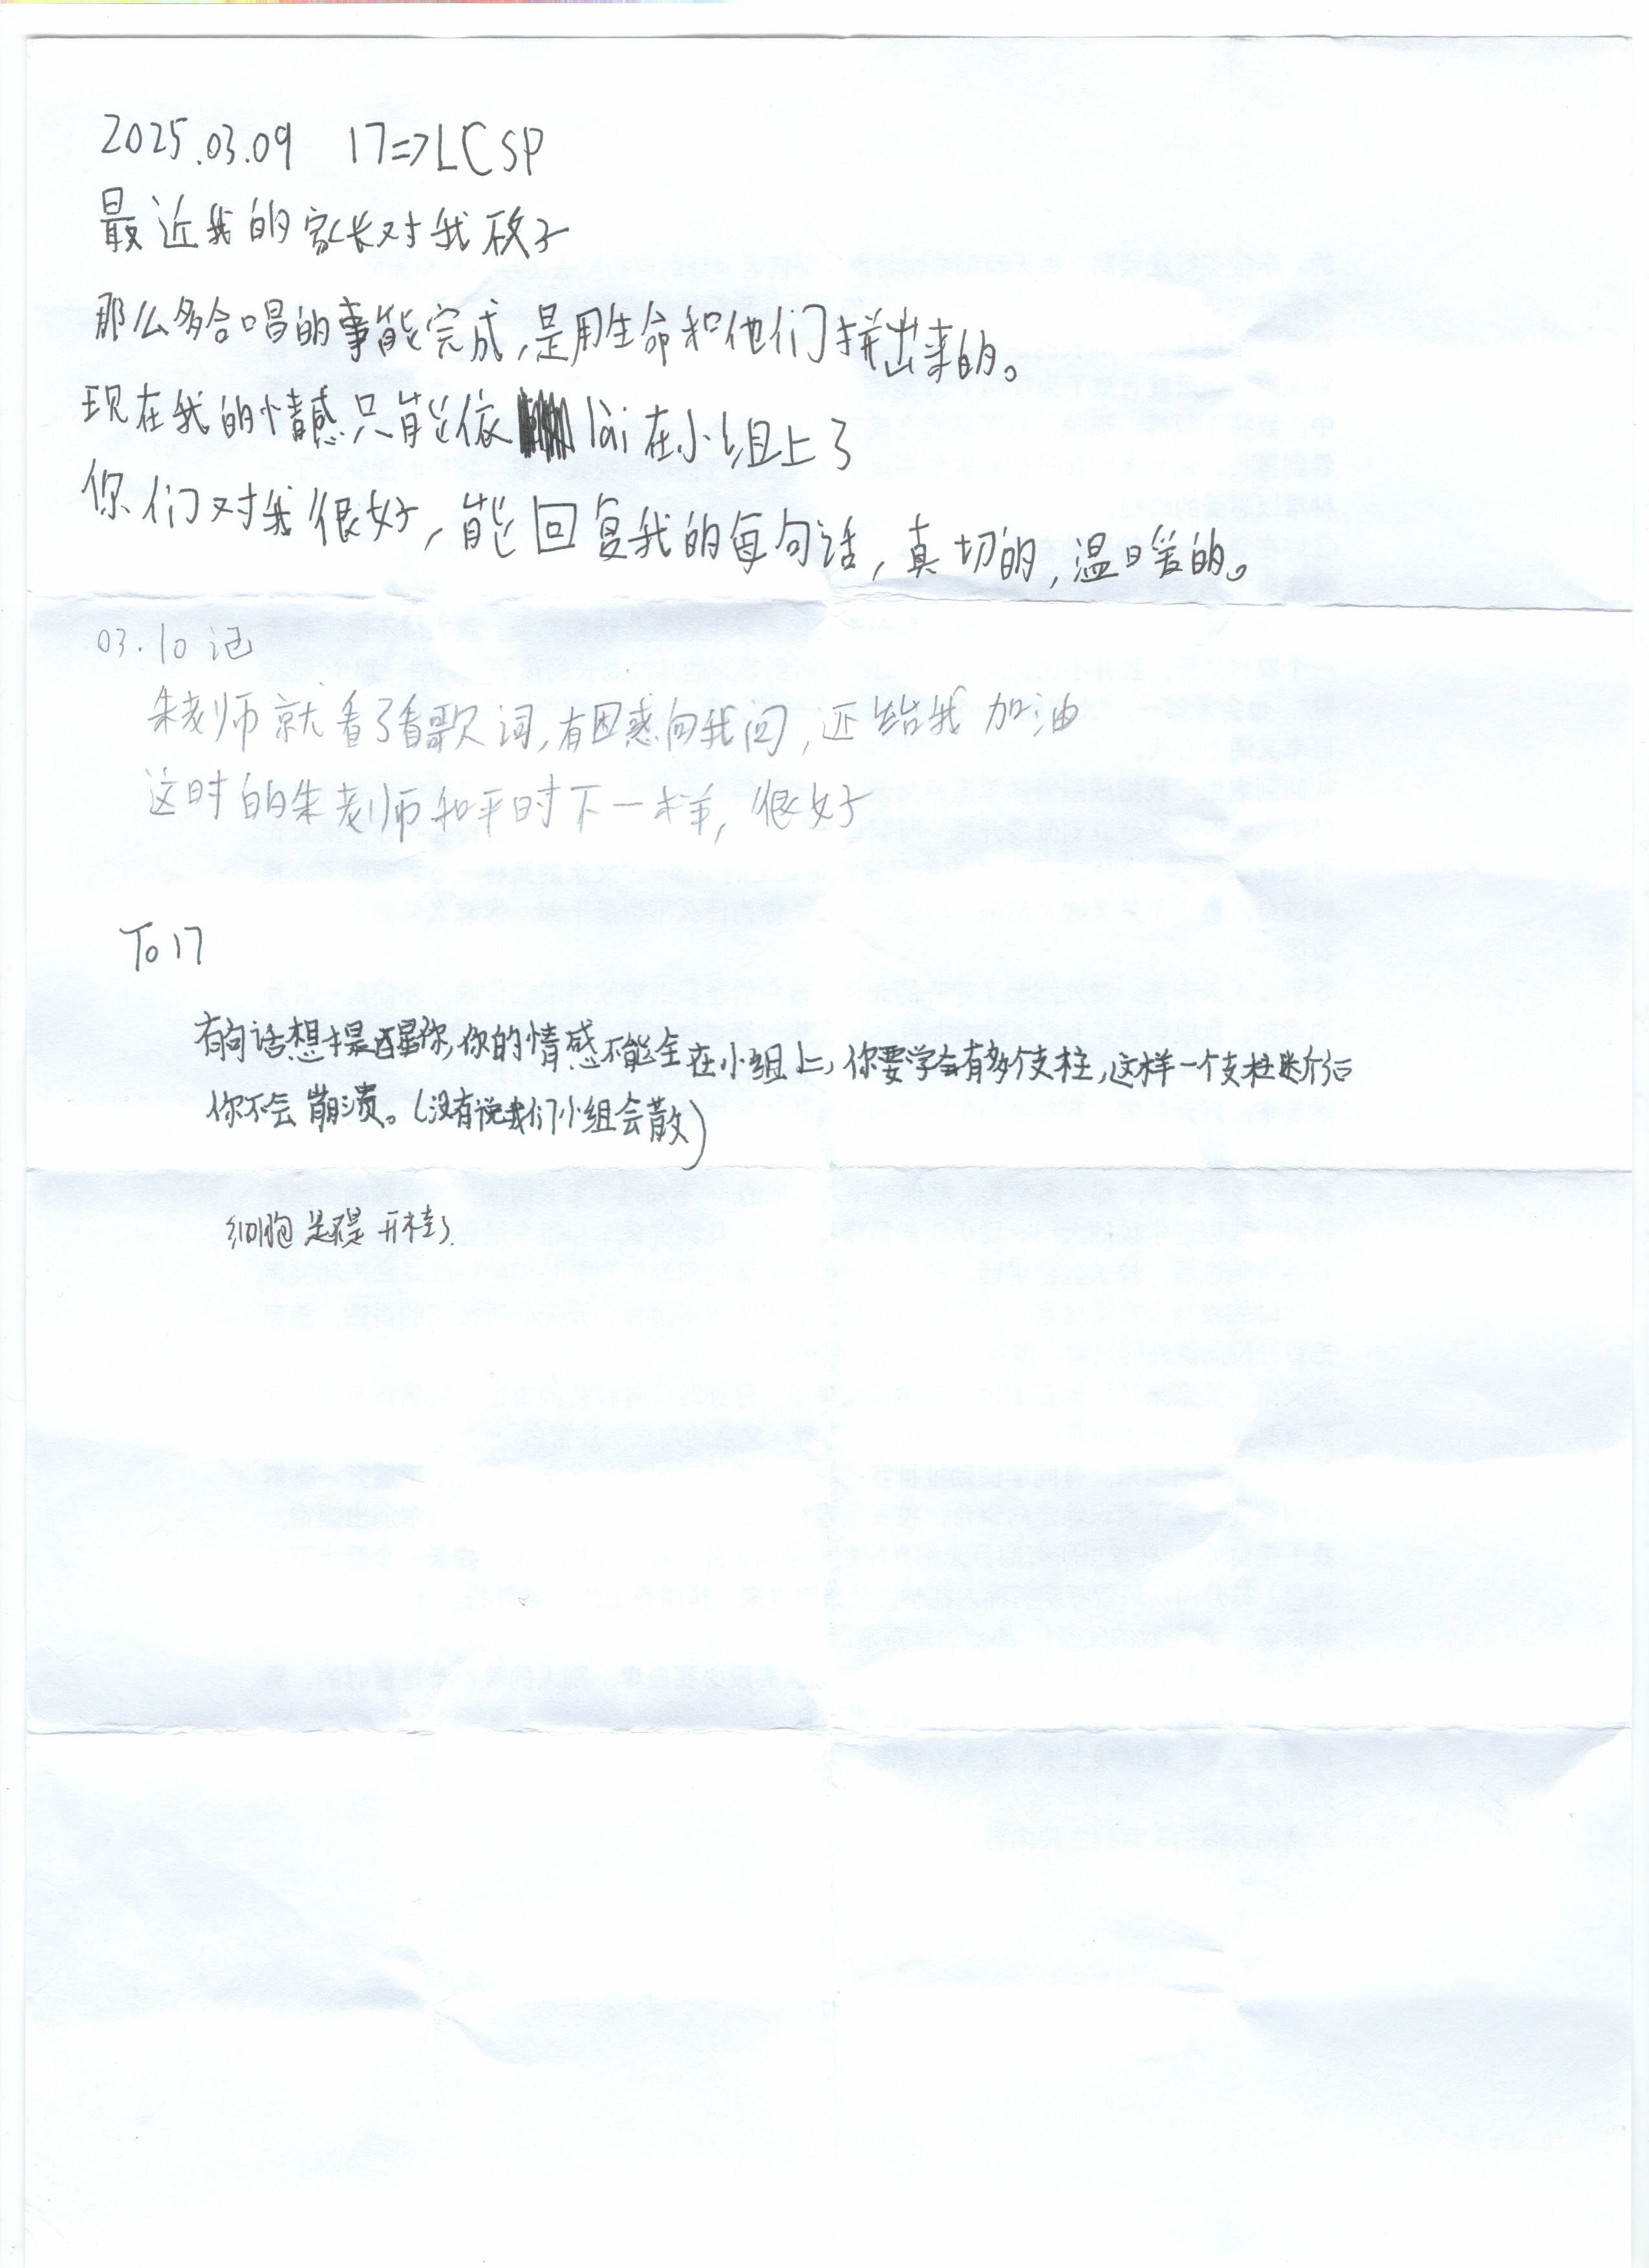 2025.03.09 17=>LCSP
最近我的家长对我
那么多合唱的事能完成,是用生命和他们拼出来的。
现在我的情感只能依lai在小组上了
你们对我很好,能回复我的每句话,真切的,温暖的。
03.10 记
朱老师就看了看歌词,有困惑向我问,还给我加油
这时的朱老师和平时不一样,很好
To 17
有句话想提醒你,你的情感不能全在小组上,你要学会有多个支柱,这样一个支柱断后
你不会崩溃。(没有说我们小组会散)
细胞是不是开挂了.